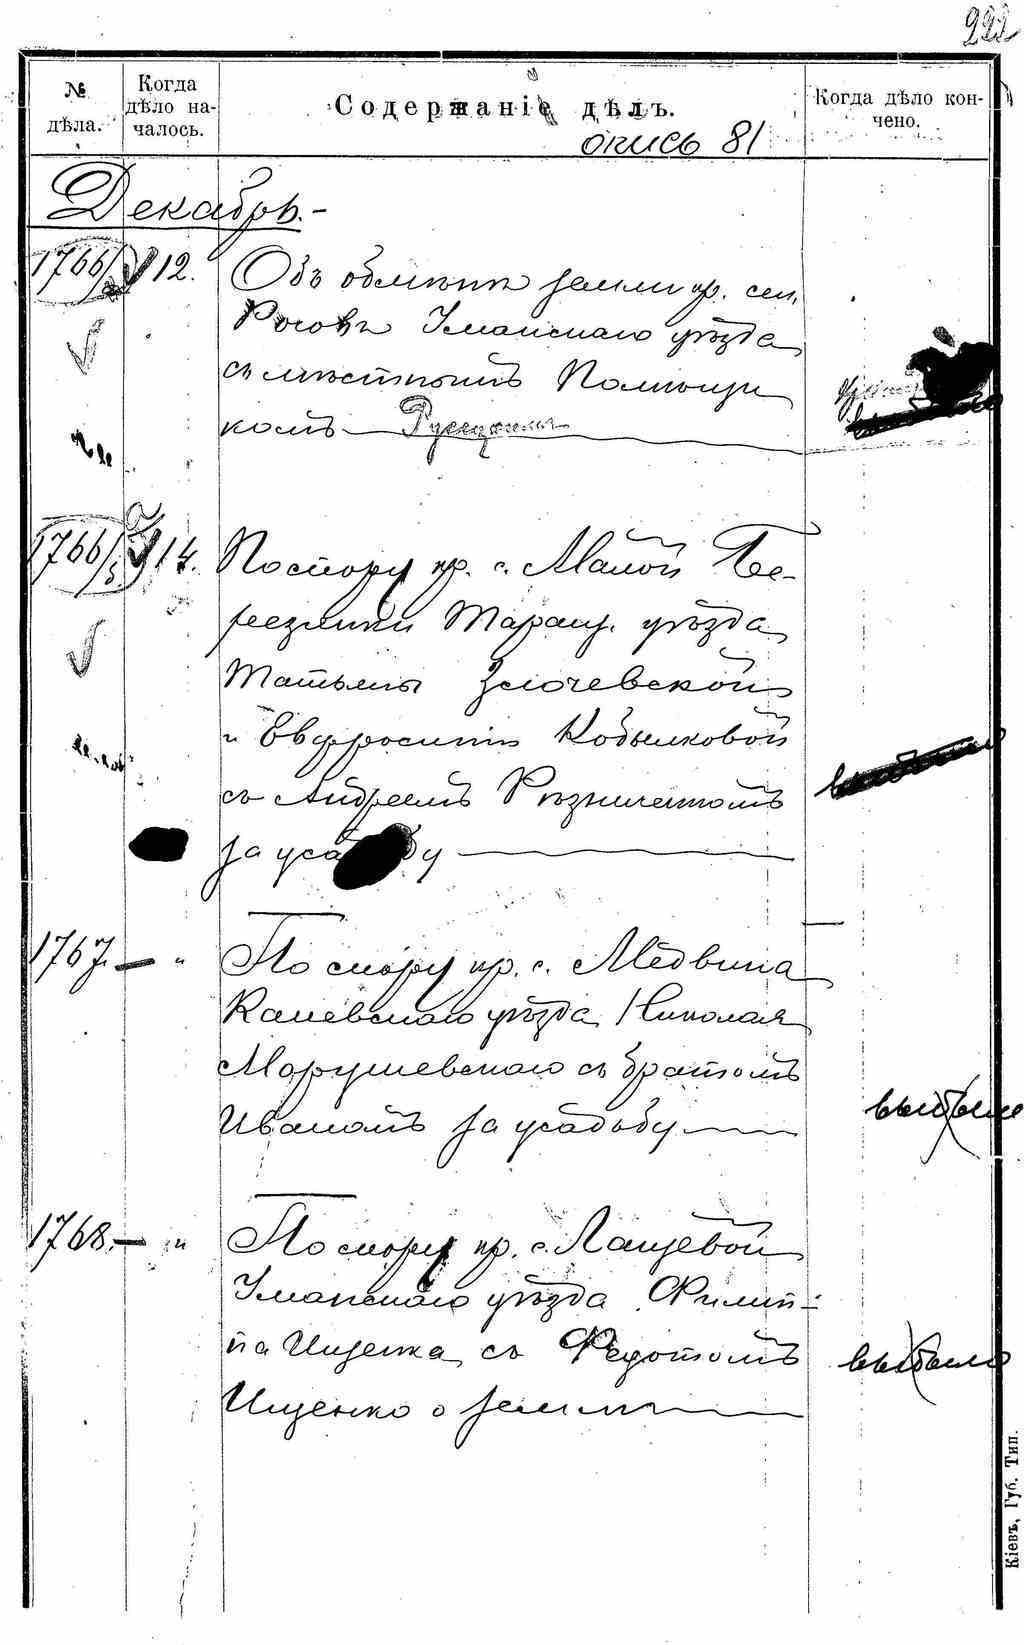 222
№ дѣла.
Когда дѣло началось.
Содержаніе дѣлъ.
Когда дѣло кончено.
опись 81
Декабрь.-
1766/а 12. Объ обмѣнѣ земли кр. сел.
Роговъ Уманскаго уѣзда
съ мѣстнымъ Помѣщи
комъ
1766/б 14. По спору кр. с. Малой Бе-
резянки Таращ. уѣзда
Татьяны Злочевской
и Евфросиніи Кобылковой
съ Андреемъ Рѣзниченкомъ
за усадьбу
1767. — „ По спору кр. с. Медвина
Каневскаго уѣзда Николая
Марушевскаго съ братомъ
Иваномъ за усадьбу
выбыло
1768. — „ По спору кр. с. Лащевой
Уманскаго уѣзда Филип-
па Ищенка съ Федотомъ
выбыло
Ищенко о землѣ
Кіевъ, Губ. Тип.